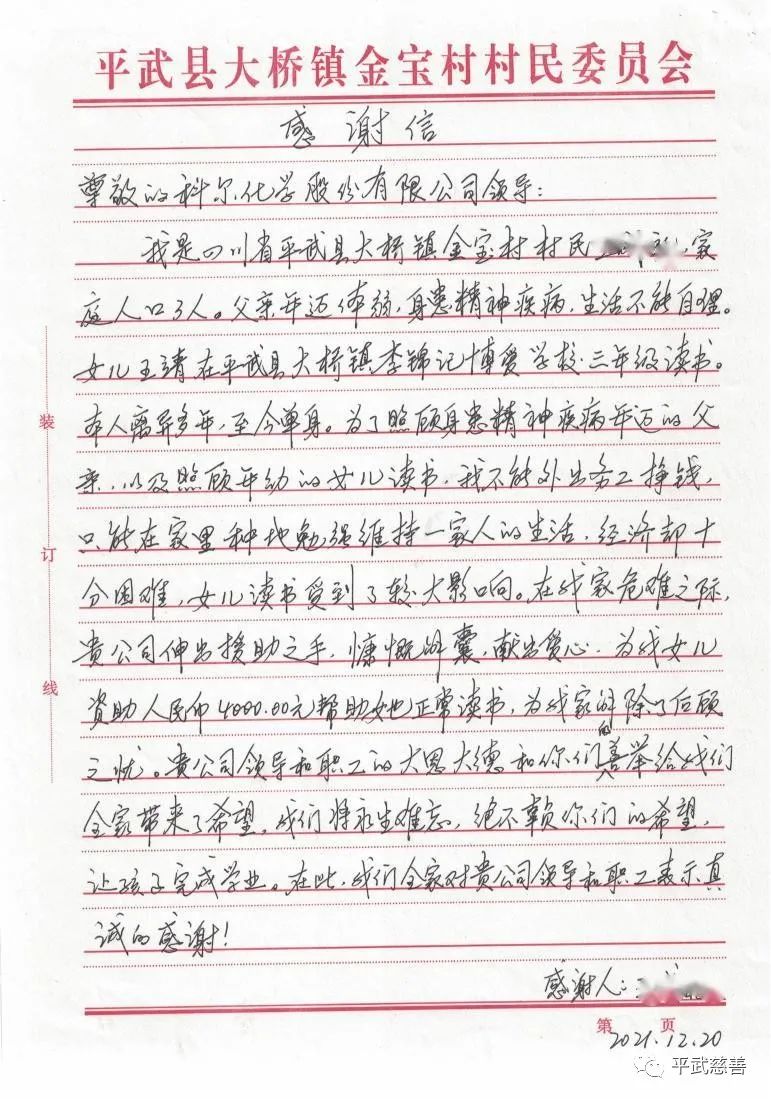 平武县大桥镇金宝村村民委员会
感谢信
尊敬的科尔化学股份有限公司领导：
我是四川省平武县大桥镇金宝村村民 家
庭人口3人。父亲年迈体弱，身患精神疾病，生活不能自理。
女儿王靖在平武县大桥镇李锦记博爱学校三年级读书。
本人离异多年，至今单身。为了照顾身患精神疾病年迈的父
亲，以及照顾年幼的女儿读书，我不能外出务工挣钱，
只能在家里种地勉强维持一家人的生活，经济部十
分困难，女儿读书受到了较大影响。在我家危难之际，
贵公司伸出援助之手，慷慨解囊，献出爱心，为我女儿
资助人民币4000.00元帮助她正常读书，为我家解除了后顾
之忧。贵公司领导和职工的大恩大德和你们的善举给我们
全家带来了希望，我们将永生难忘，绝不辜负你们的希望，
让孩子完成学业。在此，我们全家对贵公司领导和职工表示真
诚的感谢！
感谢人：
第 页
2021.12.20
装
订
线
平武慈善